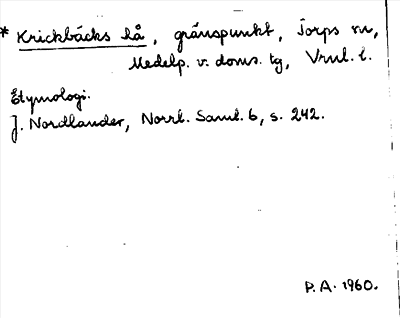 * Krickbäcks hå, gränspunkt, Torps sn,
Medelp. v. doms. tg, Vrnl. l.
Etymologi.
J. Nordlander, Norrl. Saml. 6, s. 242.
P.A. 1960.